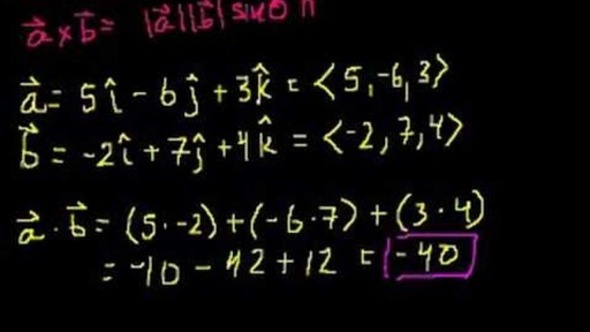 a⃗ × b⃗ = |a⃗||b⃗| sin θ n
a⃗ = 5î - 6ĵ + 3k̂ = <5, -6, 3>
b⃗ = -2î + 7ĵ + 4k̂ = <-2, 7, 4>
a⃗ · b⃗ = (5 · -2) + (-6 · 7) + (3 · 4)
= -10 - 42 + 12 = -40